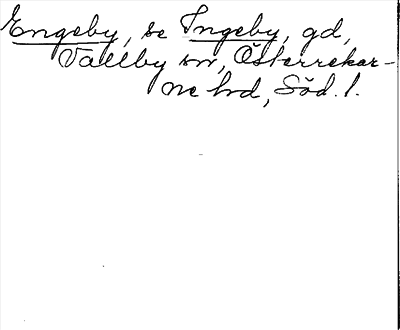 Engeby, se Ingeby, gd,
Vallby sn, Österrekar-
ne hd, Söd. l.